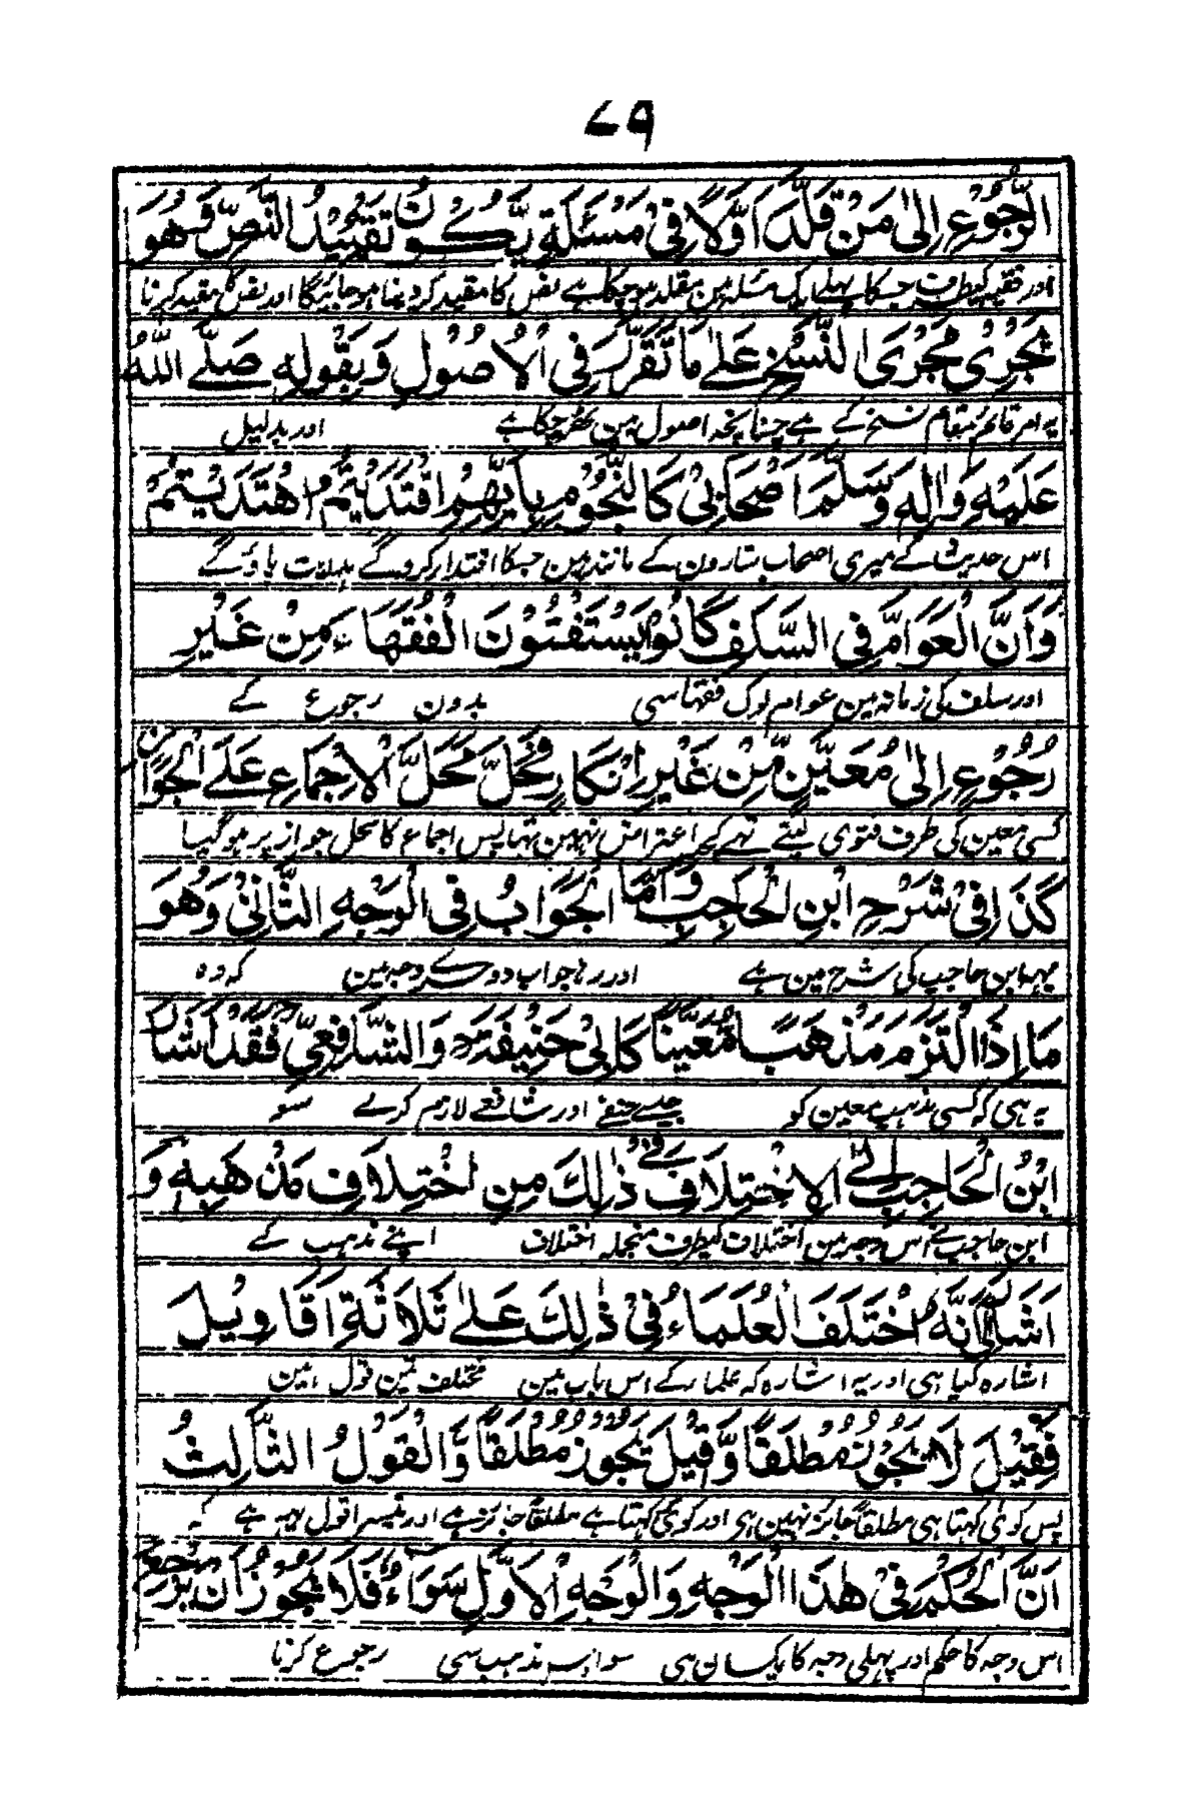 ۷۹
الرُّجُوْعِ اِلٰى مَنْ قَلَّدَ اَوَّلًا فِىْ مَسْئَلَةٍ يَّكُوْنُ تَقْيِيْدُ النَّصِّ فَهُوَ
اور فقیہ کیطرف جسکا پہلے ایک مسئلہ مین مقلد ہو چکا ہے نص کا مقید کر دینا ہو جائیگا اور نص کا مقید کرنا
يَجْرِىْ مَجْرَى النَّسْخِ عَلٰى مَا تَقَرَّرَ فِى الْاُصُوْلِ وَبِقَوْلِهٖ صَلَّے اللّٰهُ
یہ امر قائم بمقام نسخ کے ہے چنانچہ اصول مین ٹھہر چکا ہے اور بدلیل
عَلَيْهِ وَاٰلِهٖ وَسَلَّمَ اَصْحَابِىْ كَالنُّجُوْمِ بِاَيِّهِمُ اقْتَدَيْتُمُ اهْتَدَيْتُمْ
اس حدیث کے میری اصحاب ستارون کے مانند ہین جسکا اقتدار کروگے ہدایت پاؤگے
وَاَنَّ الْعَوَامَّ فِى السَّلَفِ كَانُوْا يَسْتَفْتُوْنَ الْفُقَهَاءَ مِنْ غَيْرِ
اور سلف کی زمانہ مین عوام لوگ فقہا سی بدون رجوع کے
رُجُوْعٍ اِلٰى مُعَيَّنٍ مِّنْ غَيْرِ اِنْكَارٍ فَحَلَّ مَحَلَّ الْاِجْمَاعِ عَلَے الْجَوَازِ
کسی معین کی طرف فتوی لیتے تہے کچھ اعتراض نہین تہا پس اجماع کا محل جواز پر ہو گیا
كَذَا فِىْ شَرْحِ ابْنِ الْحَاجِبِ وَاَمَّا الْجَوَابُ فِى الْوَجْهِ الثَّانِىْ وَهُوَ
یہہ ابن حاجب کی شرح مین ہے اور رہا جواب دوسرے وجہ مین کہ وہ
مَا اِذَا الْتَزَمَ مَذْهَبًا مُّعَيَّنًا كَاَبِىْ حَنِيْفَةَ وَالشَّافِعِىِّ فَقَدْ اَشَارَ
یہ ہی کہ کسی مذہب معین کو جیسے حنفے اور شافعے لازم کرلے سو
ابْنُ الْحَاجِبِ اِلَے الِاخْتِلَافِ فِے ذٰلِكَ مِنِ اخْتِلَافِ مَذْهَبِهٖ وَ
ابن حاجب نے اس وجہ مین اختلاف کیطرف منجملہ اختلاف اپنے مذہب کے
اَشَارَ اِلٰى اَنَّهُ اخْتَلَفَ الْعُلَمَاءُ فِىْ ذٰلِكَ عَلٰى ثَلَاثَةِ اَقَاوِيْلَ
اشارہ کیا ہی اور یہ اشارہ کہ علماء کے اس باب مین مختلف تین قول ہین
فَقِيْلَ لَا يَجُوْزُ مُطْلَقًا وَّقِيْلَ يَجُوْزُ مُطْلَقًا وَّالْقَوْلُ الثَّالِثُ
پس کوئی کہتا ہی مطلقا جائز نہین ہی اور کوئی کہتا ہے مطلقا جائز ہے اور تیسرا قول یہہ ہے کہ
اَنَّ الْحُكْمَ فِىْ هٰذَا الْوَجْهِ وَالْوَجْهِ الْاَوَّلِ سَوَاءٌ فَلَا يَجُوْزُ اَنْ يَّرْجِعَ
اس وجہ کا حکم اور پہلی وجہ کا یکسان ہی سو اپنے مذہب سی رجوع کرنا